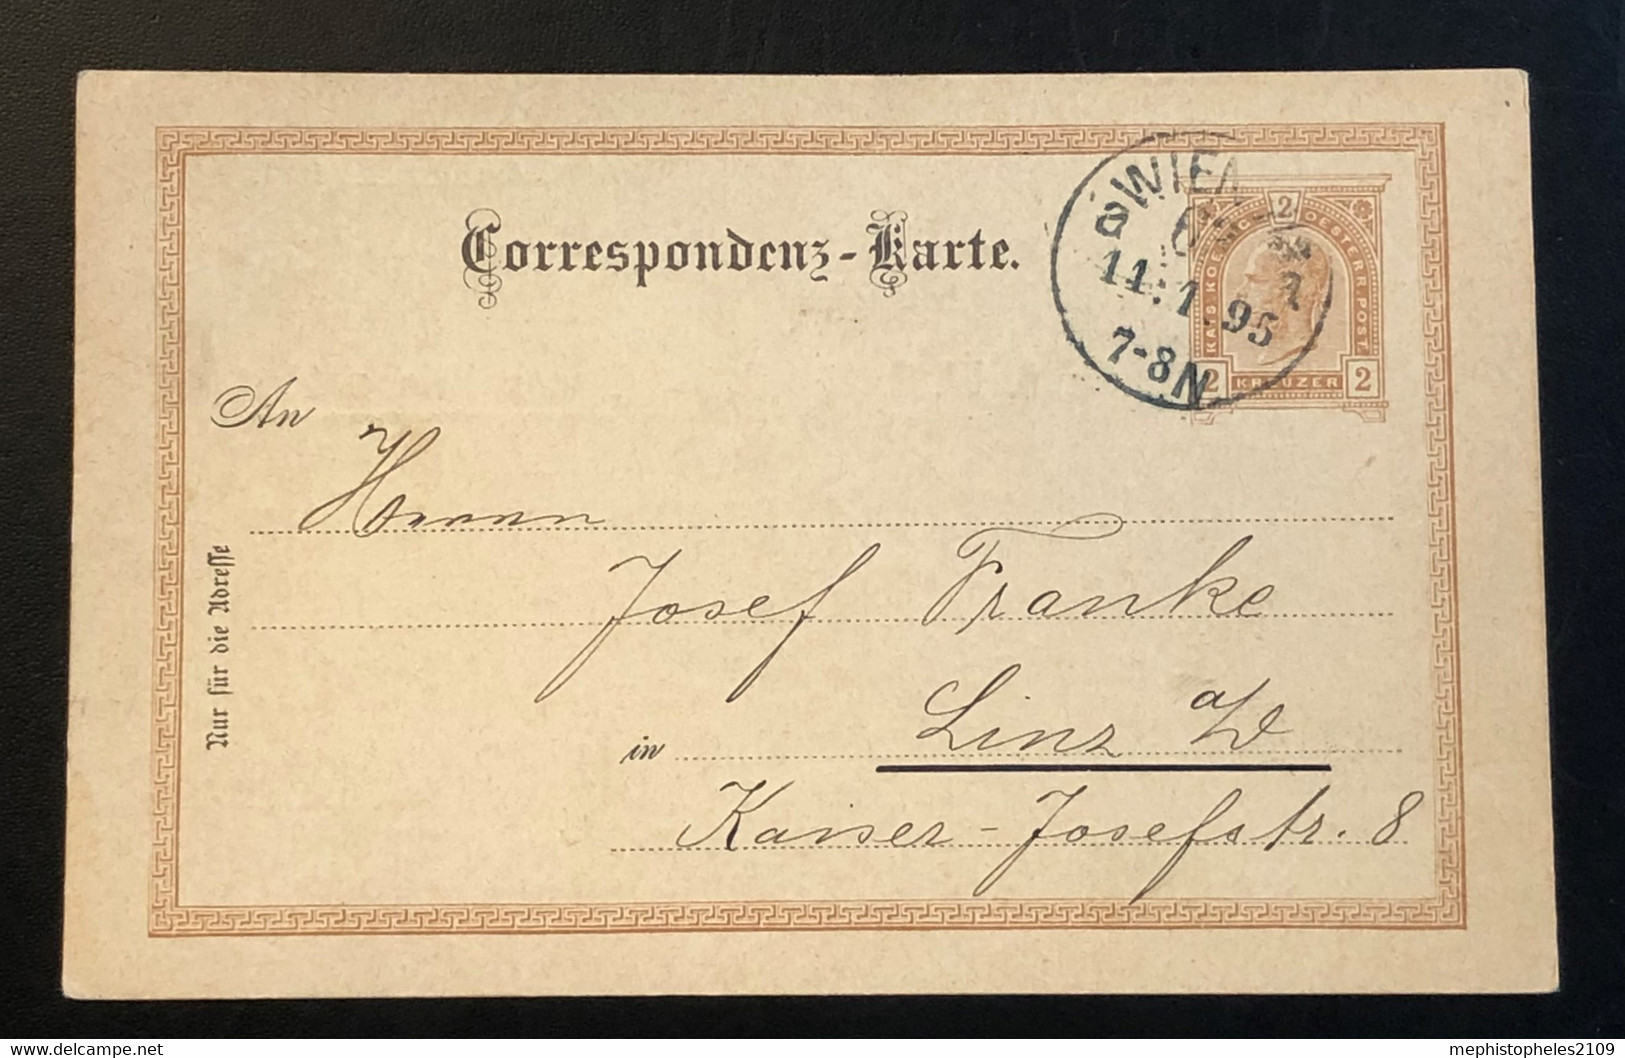 Correspondenz-Karte.
WIEN
11.1.95
7-8N
2
KAIS. KOENIGL. OESTERR. POST
2 KREUZER 2
An
Herrn
Josef Franke
in Linz a/D
Kaiser-Josefstr. 8
Nur für die Adresse
mephistopheles2109